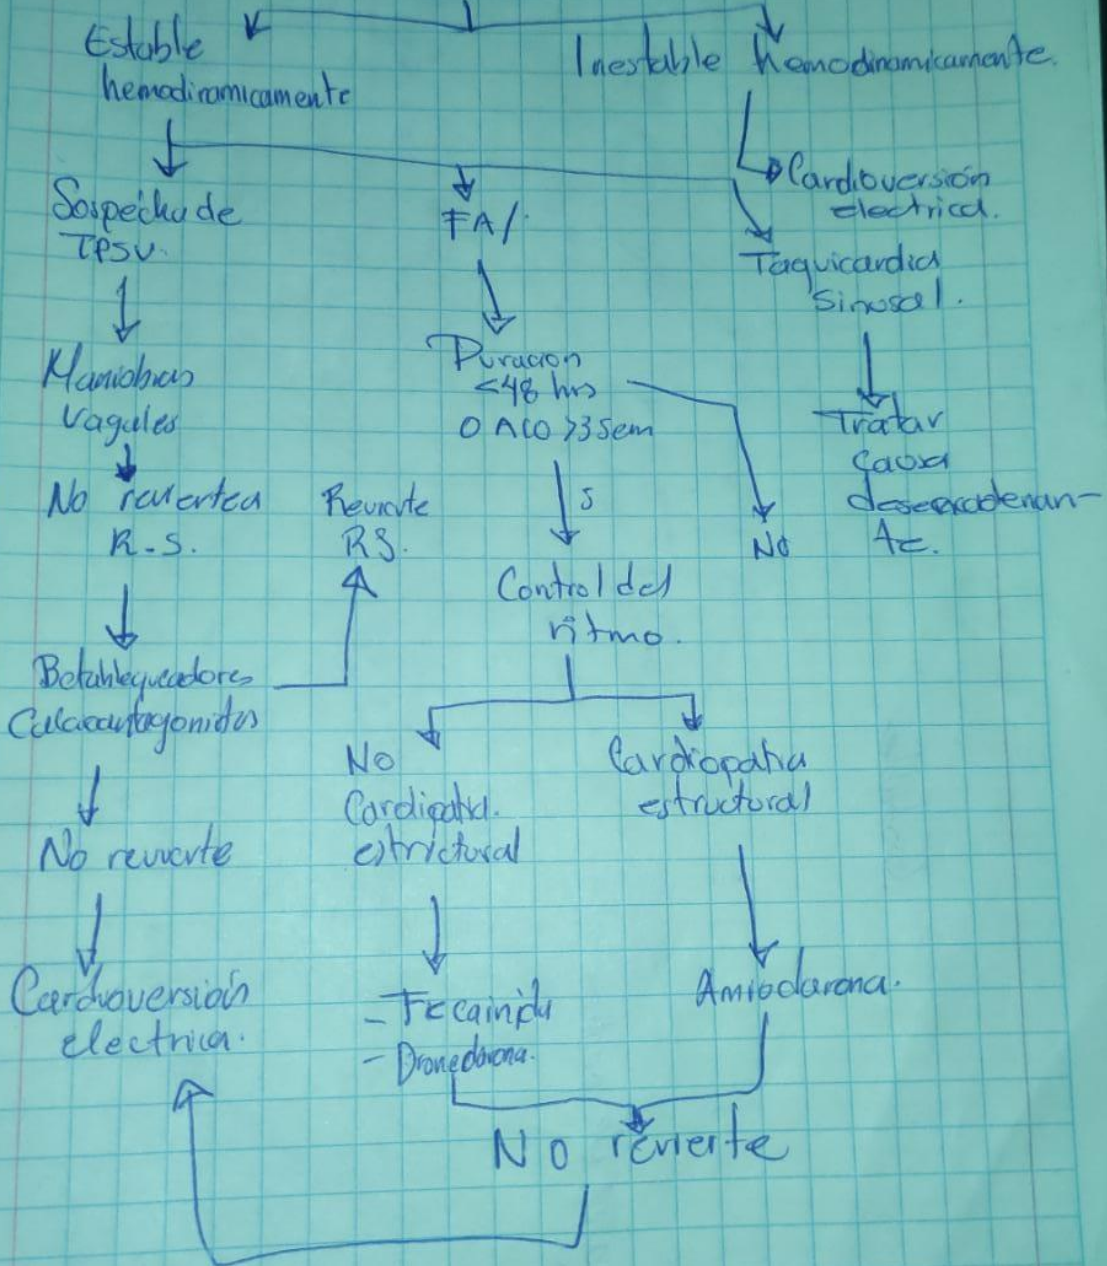 Estable
hemodinamicamente
Inestable hemodinamicamente.
Sospecha de
TPSV.
FA/.
Cardioversión
electrica.
Taquicardia
Sinusal.
Maniobras
Vagales
Duracion
<48 hrs
O ACO >3 Sem
Tratar
Causa
desencadenan-
te.
No revierte a
R.S.
Revierte
RS.
S
No
Control del
ritmo.
Betabloqueadores
Calcioantagonistas
No
Cardiopatia.
estrictural
Cardiopatia
estructural
No revierte
Cardioversión
electrica.
- Flecainida
- Dronedarona.
Amiodarona.
No revierte